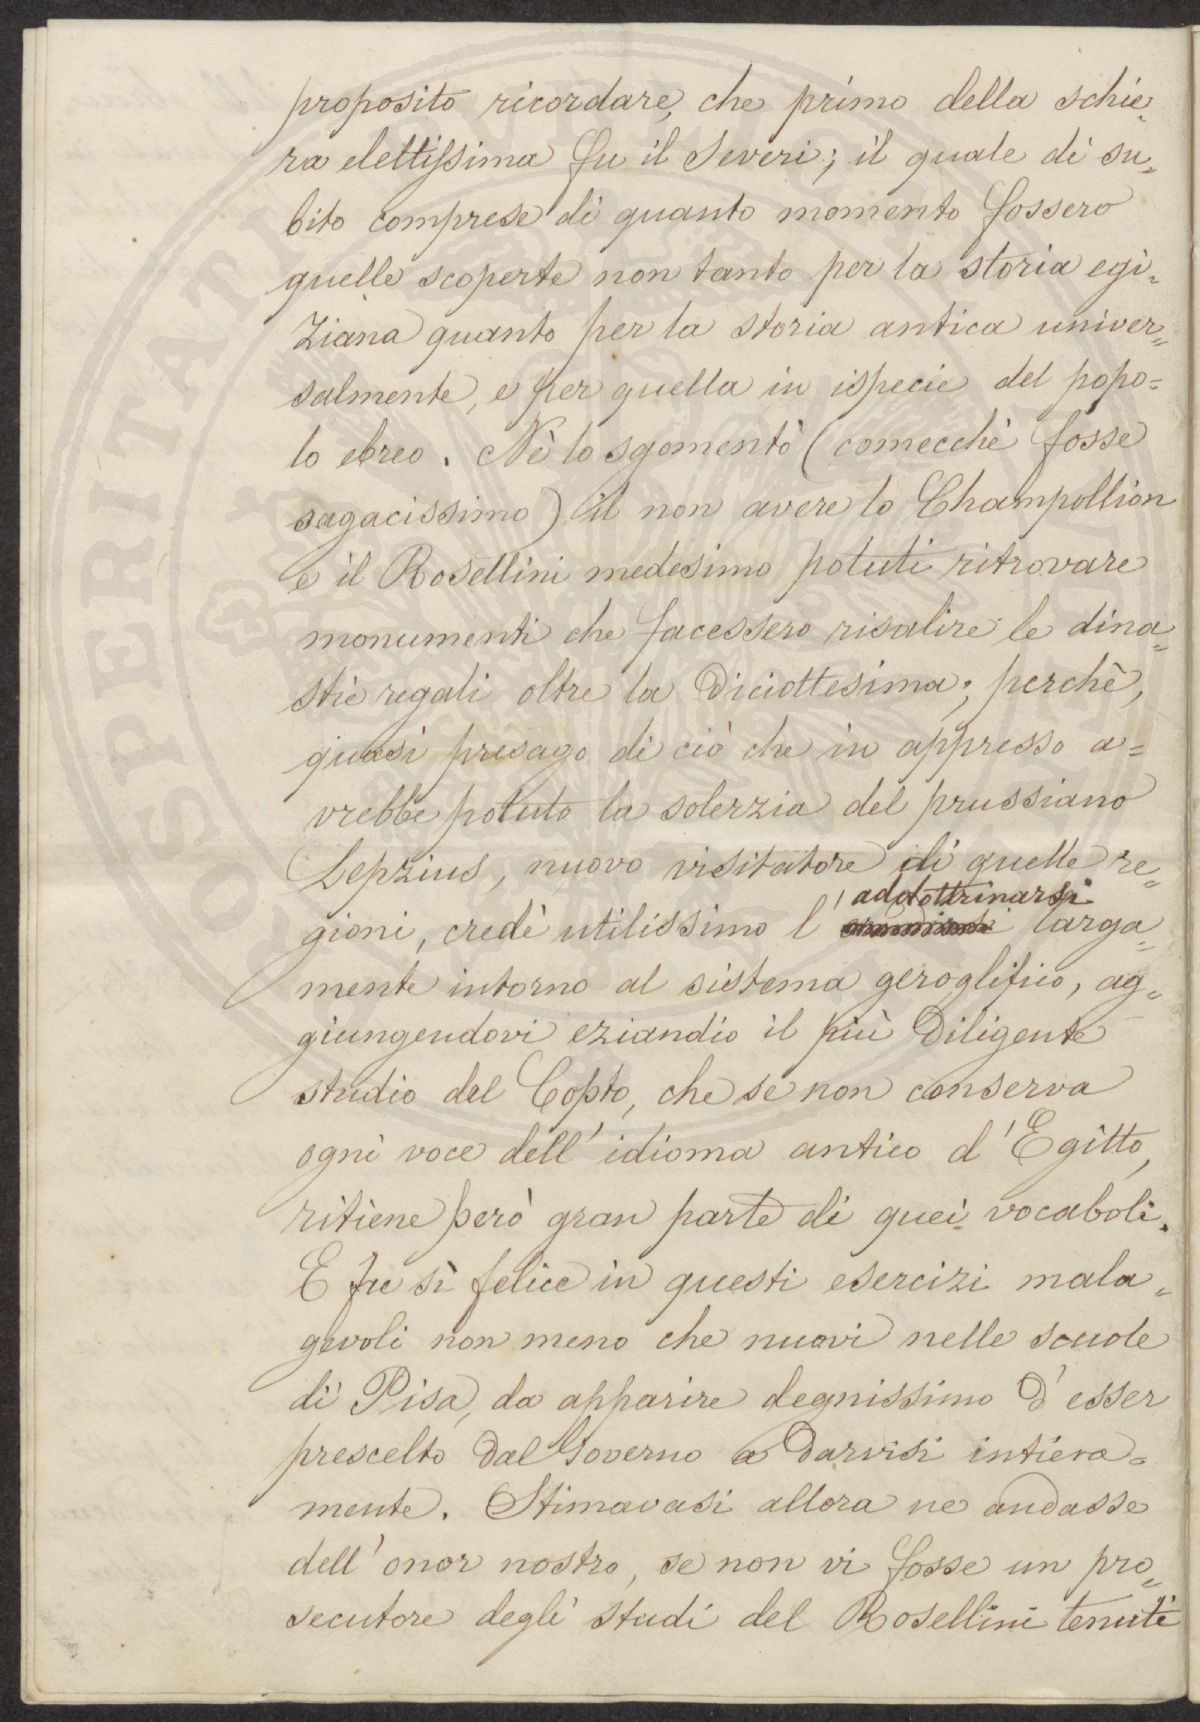 proposito ricordare, che primo della schie-
ra elettissima fu il Severi; il quale di su-
bito comprese di quanto momento fossero
quelle scoperte non tanto per la storia egi-
ziana quanto per la storia antica univer-
salmente, e per quella in ispecie del popo-
lo ebreo. Nè lo sgomentò (comecchè fosse
sagacissimo) il non avere lo Champollion
e il Rosellini medesimo potuti ritrovare
monumenti che facessero risalire le dina-
stie regali oltre la Diciottesima; perchè,
quasi presago di ciò che in appresso a-
vrebbe potuto la solerzia del prussiano
Lepzius, nuovo visitatore di quelle re-
gioni, credè utilissimo l'addottrinarsi larga-
mente intorno al sistema geroglifico, ag-
giungendovi eziandio il più Diligente
studio del Copto, che se non conserva
ogni voce dell'idioma antico d'Egitto,
ritiene però gran parte di quei vocaboli.
E fu sì felice in questi esercizi mala-
gevoli non meno che nuovi nelle scuole
di Pisa, da apparire degnissimo D'esser
prescelto Dal Governo a Darvisi intiera-
mente. Stimavasi allora ne andasse
dell'onor nostro, se non vi fosse un pro-
secutore degli studi del Rosellini tenuti
SPERITATI